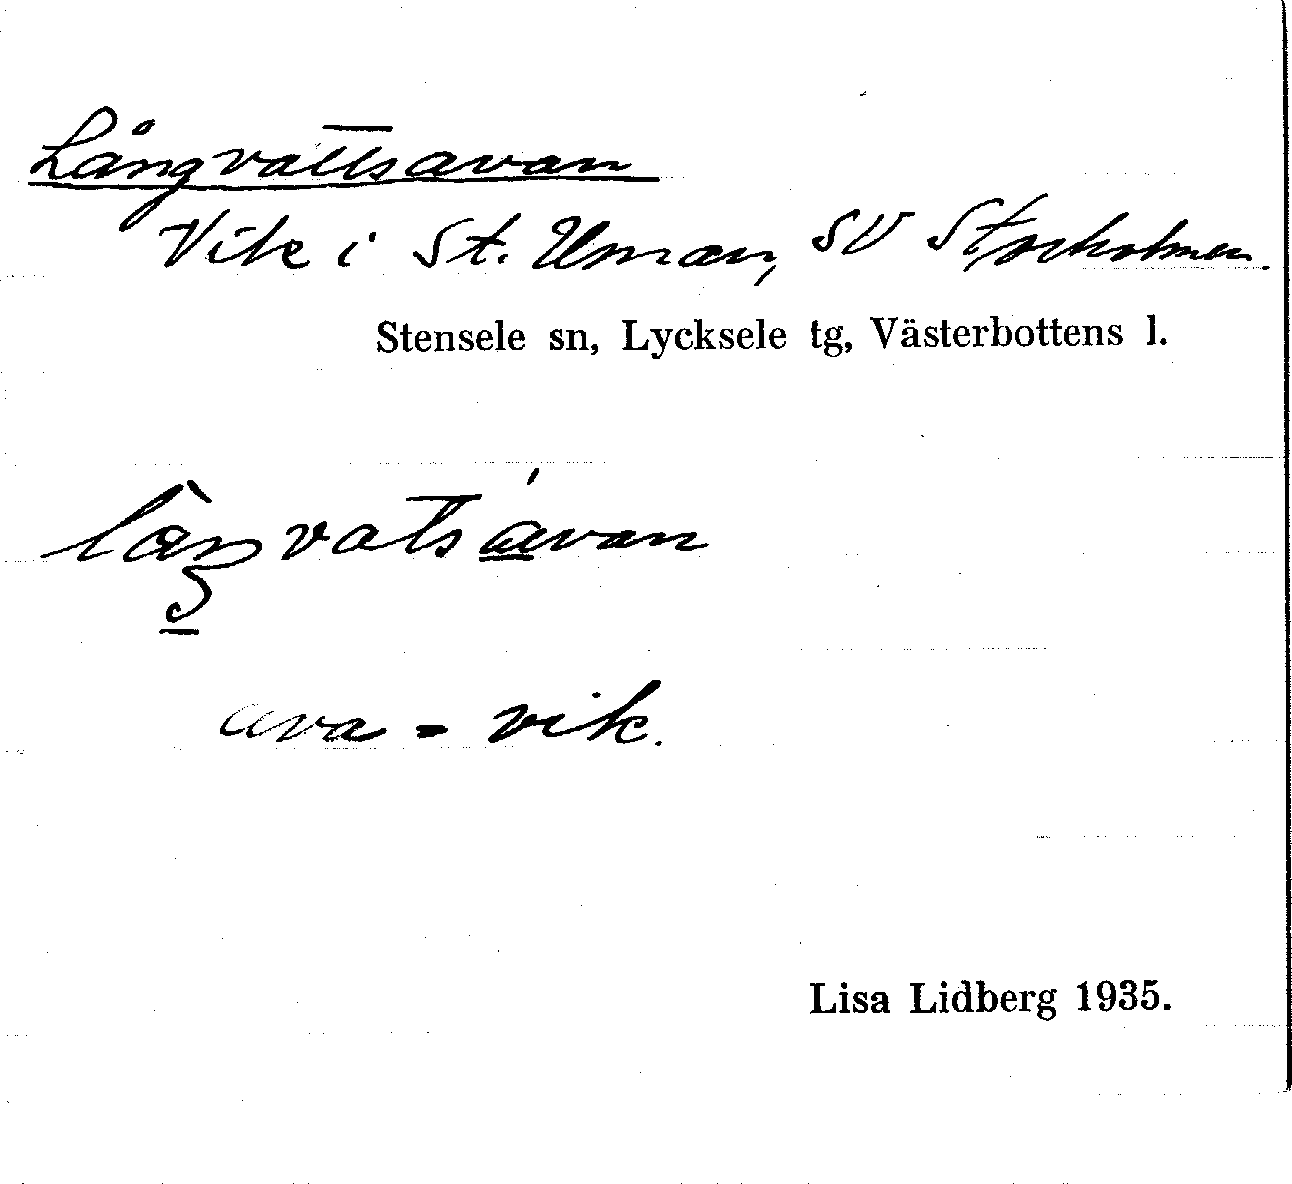 Långvattsavan
Vik i St. Uman, SV Storholmen.
Stensele sn, Lycksele tg, Västerbottens l.
ava = vik.
Lisa Lidberg 1935.